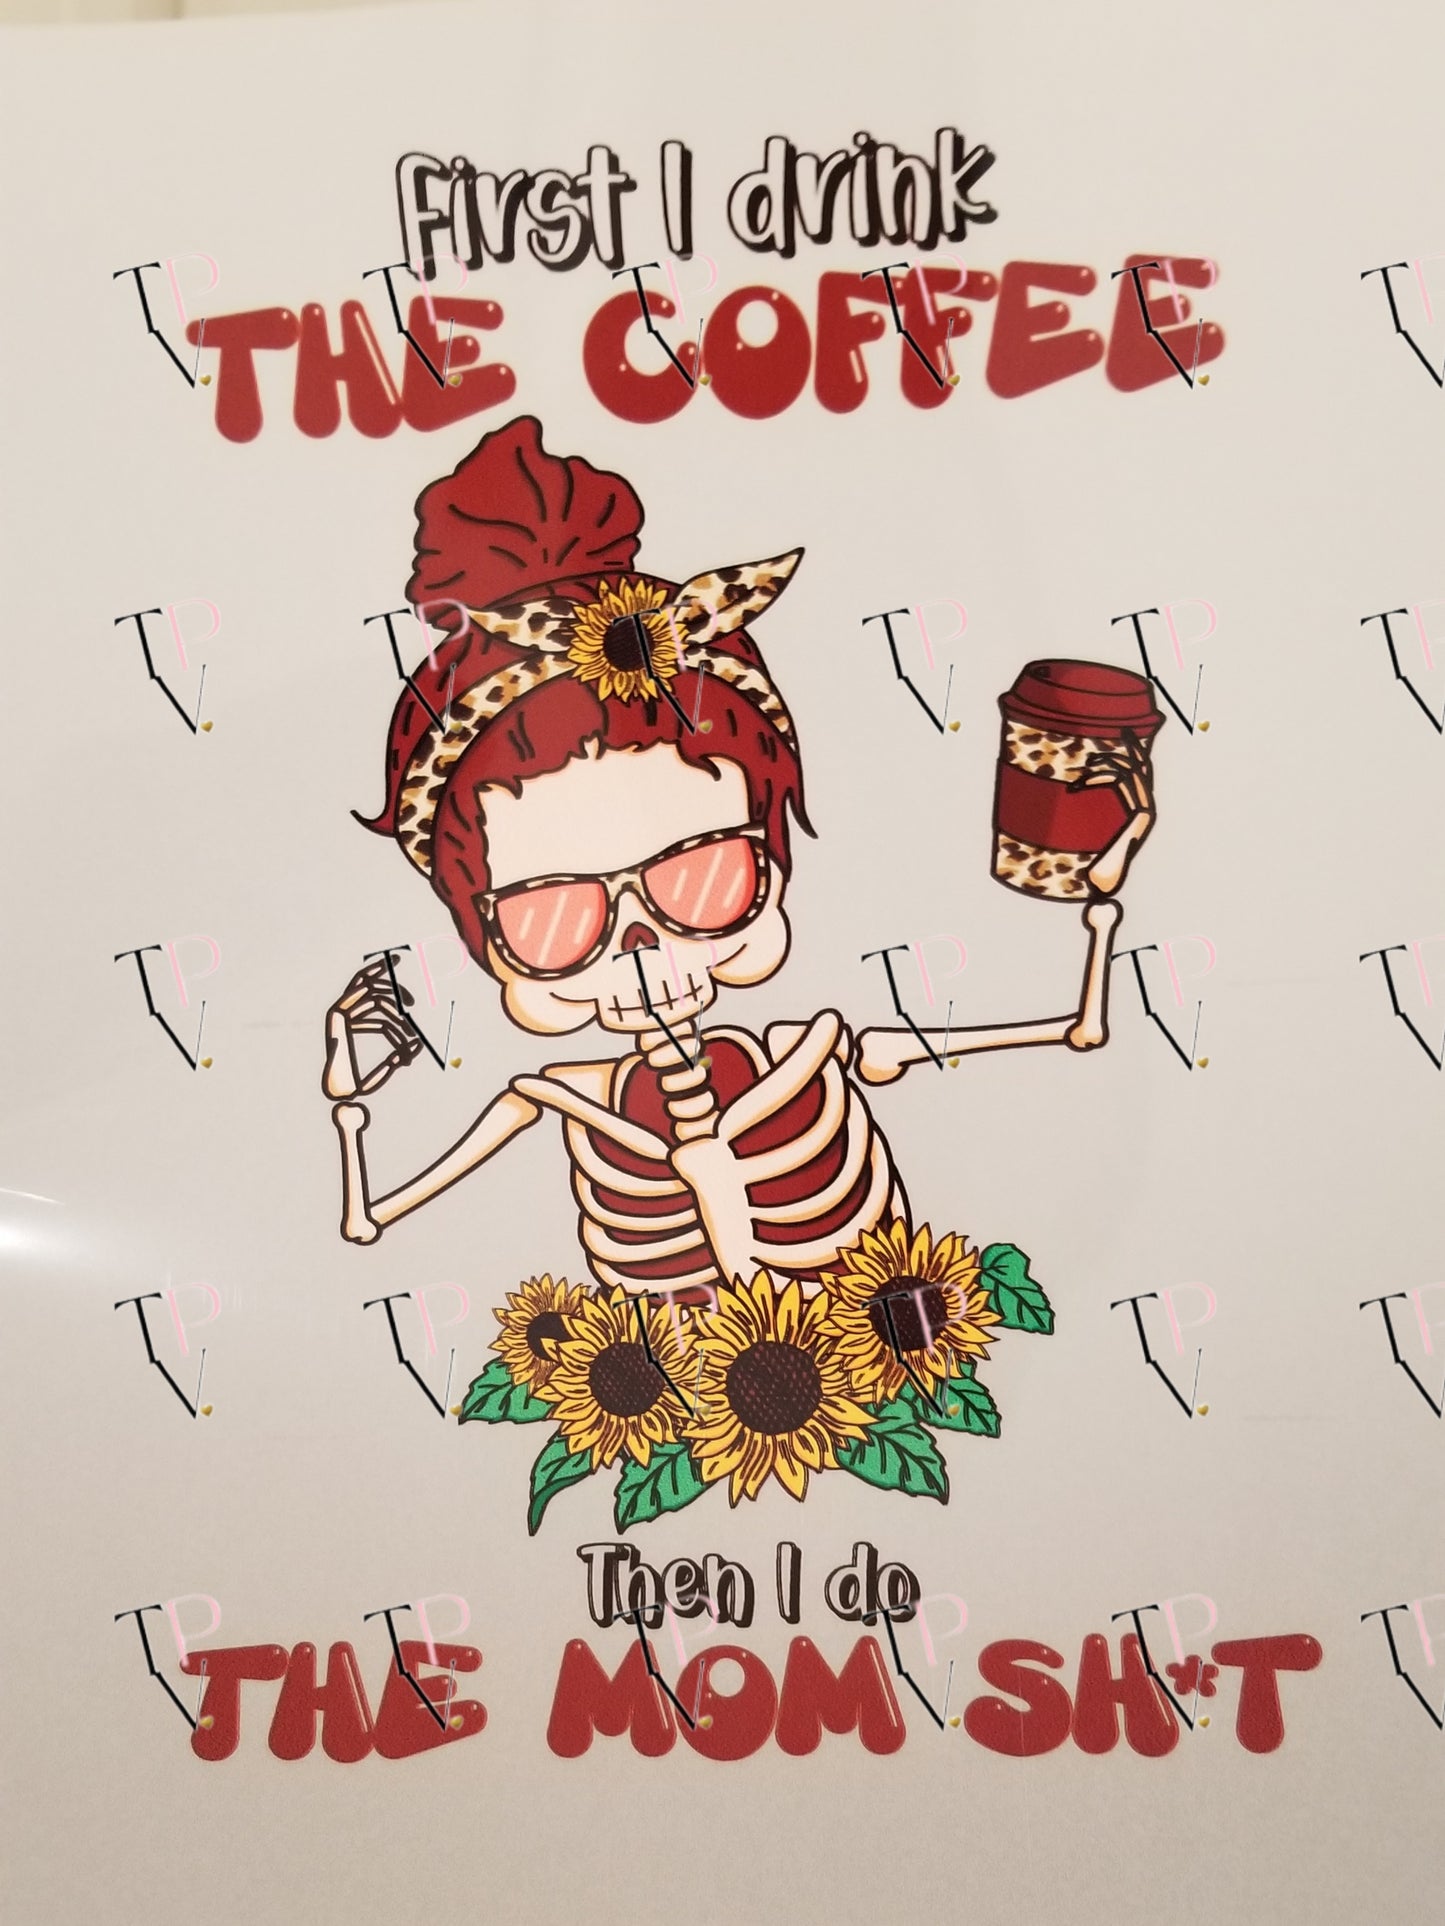 First I drink
THE COFFEE
Then I do
THE MOM SH*T